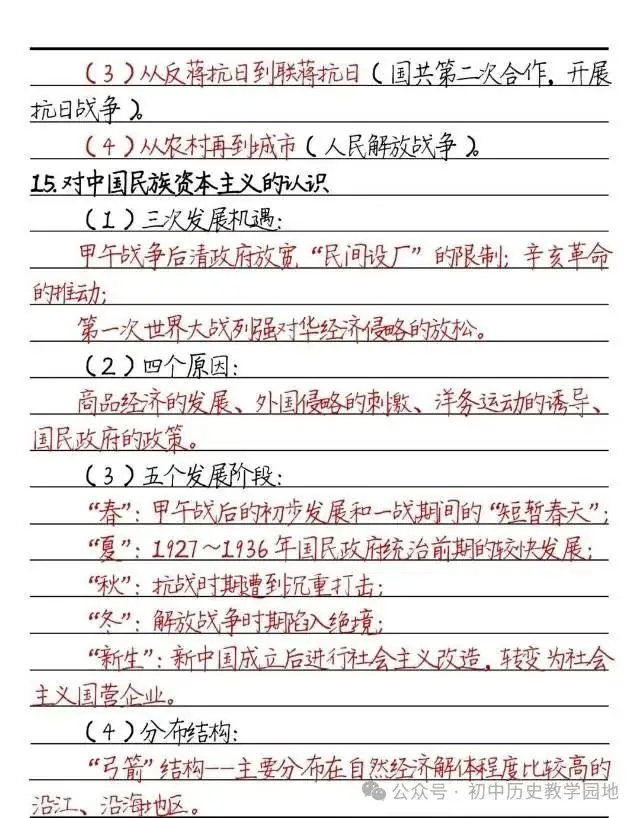 （3）从反蒋抗日到联蒋抗日（国共第二次合作，开展
抗日战争）。
（4）从农村再到城市（人民解放战争）。
15.对中国民族资本主义的认识
（1）三次发展机遇：
甲午战争后清政府放宽“民间设厂”的限制；辛亥革命
的推动；
第一次世界大战列强对华经济侵略的放松。
（2）四个原因：
商品经济的发展、外国侵略的刺激、洋务运动的诱导、
国民政府的政策。
（3）五个发展阶段：
“春”：甲午战后的初步发展和一战期间的“短暂春天”；
“夏”：1927～1936年国民政府统治前期的较快发展；
“秋”：抗战时期遭到沉重打击；
“冬”：解放战争时期陷入绝境；
“新生”：新中国成立后进行社会主义改造，转变为社会
主义国营企业。
（4）分布结构：
“弓箭”结构——主要分布在自然经济解体程度比较高的
沿江、沿海地区。
公众号·初中历史教学园地